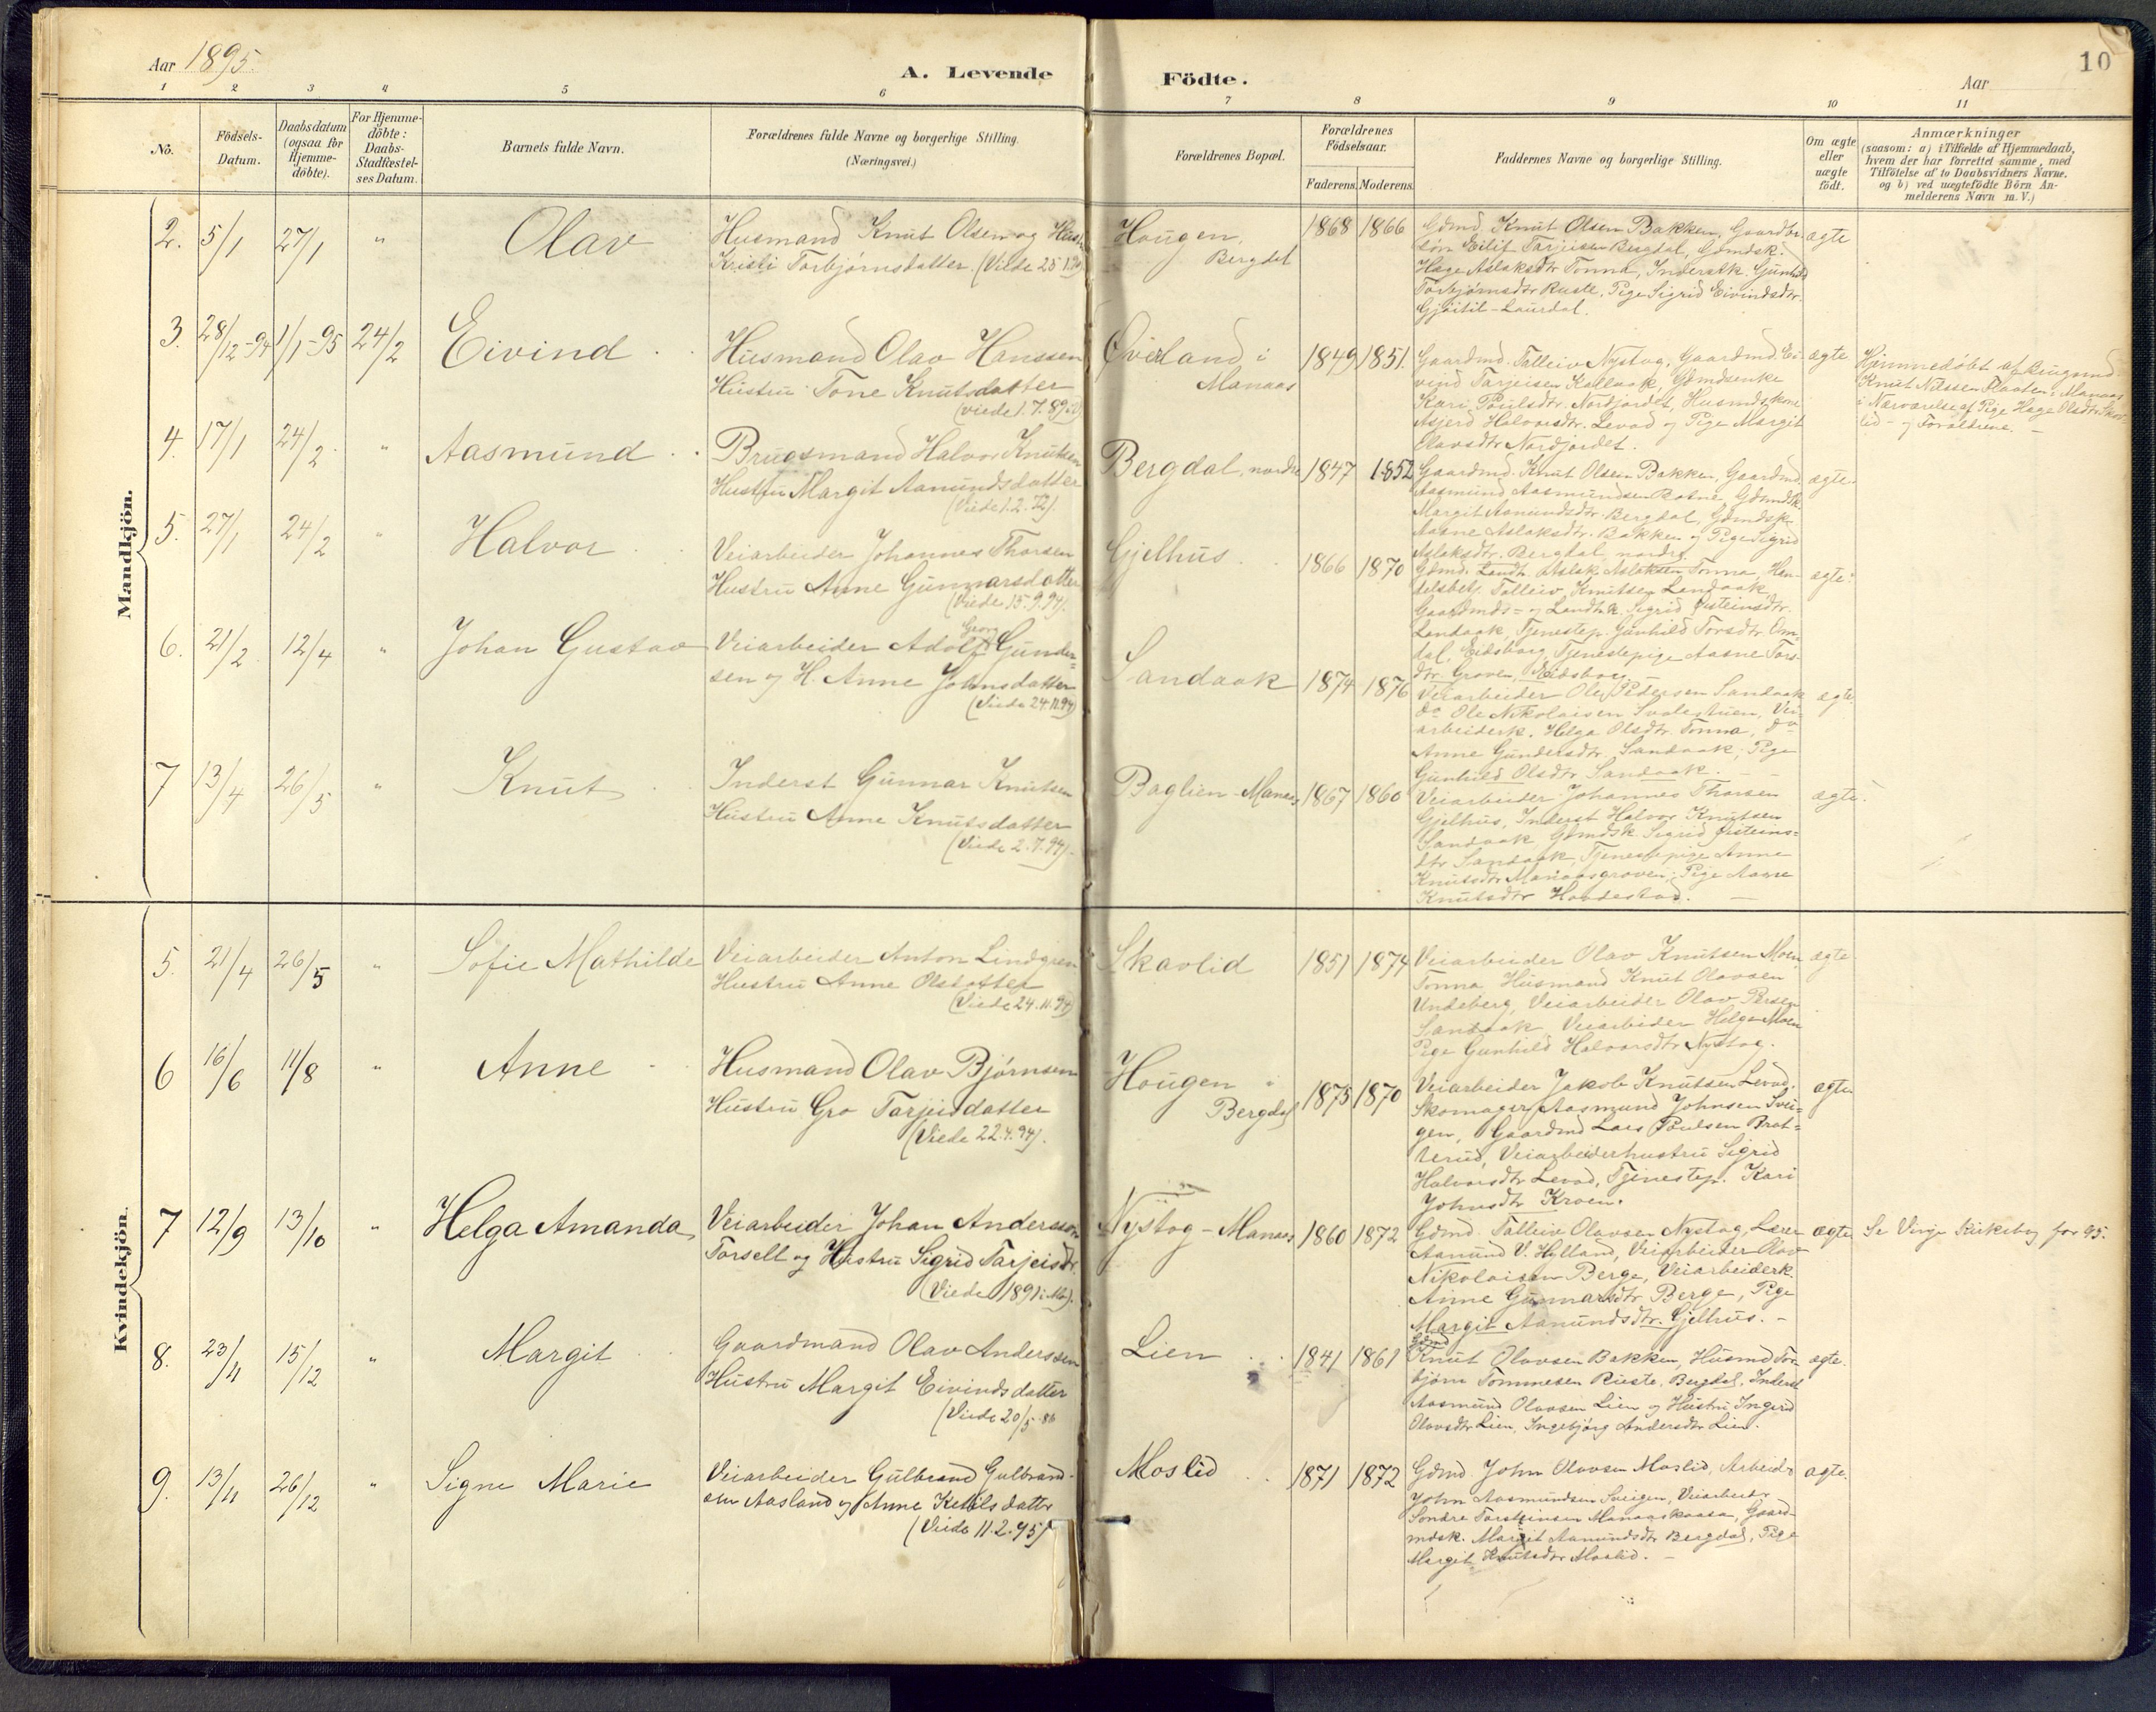 Aar 1895.
A. Levende
Födte.
Aar
10
1 2 3 4 5 6 7 8 9 10 11
No.
Födsels-Datum.
Daabsdatum (ogsaa for Hjemme-döbte).
For Hjemme-döbte: Daabs-Stadfæstel-ses Datum.
Barnets fulde Navn.
Forældrenes fulde Navne og borgerlige Stilling.
(Næringsvei.)
Forældrenes Bopæl.
Forældrenes Födselsaar.
Faderens. Moderens.
Faddernes Navne og borgerlige Stilling.
Om ægte eller uægte födt.
Anmærkninger
(saasom: a) i Tilfælde af Hjemmedaab,
hvem der har forrettet samme, med
Tilföielse af to Daabsvidners Navne.
og b) ved uægtefödte Börn An-
melderens Navn m. V.)
Mandkjön.
2. 5/1 27/1 " Olav
Husmand Knut Olsen og Hustr
Kristi Torbjørnsdatter. (Viede 25.1.
Hougen,
Bergdal
1868 1866
Gdmd Knut Olsen Bakken, Gaardbr.
søn Eilif Tarjeisen Bergdal, Gdmdsk.
Hæge Aslaksdtr Tonna, Inderstk. Gunhild
Torbjørnsdtr Ruste, Pige Sigrid Eivindsdtr.
Gjøitil - Laurdal.
ægte
3. 28/12-94 1/1-95 24/2 Eivind
Husmand Olav Hanssen
Hustru Tone Knutsdatter
(viede 1.7.89
Øverland i
Manaas
1849 1851.
Gaardmd. Talleiv Nystog, Gaardmd. Ei-
vind Tarjeisen Kallaak, Gdmdsenke
Kari Poulsdtr. Nordjordet, Husmdskone
Asjerd Halvorsdtr. Levad og Pige Margit
Olavsdtr Nordjordet.
ægte
Hjemmedøbt af Brugsmd.
Knut Nilssen Flaaten i Manaas
i Nærværelse af Pige Hæge Olsdtr Skav-
lid - og Forældrene. -
4. 17/1 24/2 " Aasmund
Brugsmand Halvor Knutsen
Hustru Margit Aanundsdatter
(Viede 1.2.72).
Bergdal, nordre
1847 1852
Gaardmd. Knut Olsen Bakken, Gaardmd.
Aasmund Aasmundsen Botne, Gdmdsk.
Margit Aanundsdtr. Bergdal, Gdmdsk.
Aasne Aslaksdtr. Bakken og Pige Sigrid
Aslaksdtr. Bergdal nordre.
ægte.
5. 27/1 24/2 " Halvor
Veiarbeider Johannes Thorsen
Hustru Anne Gunnarsdatter
(Viede 15.9.94).
Gjelhus
1866 1870
Gdmd. Landh. Aslak Aslaksen Tonna, Han-
delsbetj. Talleiv Knutsen Landaak,
Gaardmds- og Landhk. Sigrid Øisteinsdtr.
Landaak, Tjenestep. Gunhild Torsdtr Om-
dal, Eidsborg, Tjenestepige Aasne Tors-
dtr. Groven, Eidsborg. -
ægte.
6. 21/2 12/4 " Johan Gustav
Veiarbeider Adolf Georg Gunder-
sen og H. Anne Johnsdatter
(Viede 24.11.94)
Sandaak
1874 1876
Veiarbeider Ole Pedersen Sandaak
do Ole Nikolaisen Svalestuen, Vei-
arbeiderk. Helga Olsdtr. Tonna, do
Anne Gundersdtr, Sandaak, Pige
Gunhild Olsdtr Sandaak. -
ægte.
7 13/4 26/5 " Knut
Inderst Gunnar Knutsen
Hustru Anne Knutsdatter
(Viede 2.7.94)
Baglien - Manaas
1867 1860
Veiarbeider Johannes Thorsen
Gjelhus, Inderst Halvor Knutsen
Sandaak, Gdmdsk. Sigrid Øisteins-
dtr Sandaak, Tjenestepige Anne
Knutsdtr Manaasgroven, Pige Aasne
Knutsdtr Hovdestad. -
ægte.
Kvindekjön.
5. 21/4 26/5 " Sofie Mathilde
Veiarbeider Anton Lindgren
Hustru Anne Olsdatter
(Viede 24.11.94)
Skavlid
1851 1874
Veiarbeider Olav Knutsen Moen,
Tonna, Husmand Knut Olavsen
Undeberg, Veiarbeider Olav Persen
Sandaak, Veiarbeider Helge Moen
Pige Gunhild Halvorsdtr Nystog.
ægte
6 16/6 11/8 " Anne
Husmand Olav Bjørnsen
Hustru Gro Tarjeisdatter
(Viede 22.4.94).
Hougen i
Bergdal
1875 1870
Veiarbeider Jakob Knutsen Levad.
Skomager Aasmund Johnsen Svei-
gen, Gaardmd Lars Poulsen Brat-
terud, Veiarbeiderhustru Sigrid
Halvorsdtr Levad, Tjenestep. Kari
Johnsdtr Kroen.
ægte
7 12/9 13/10 " Helga Amanda
Veiarbeider Johan Andersson
Torsell og Hustru Sigrid Tarjeisdtr.
(Viede 1891 i Mo).
Nystog - Manaas
1860 1872
Gdmd. Talleiv Olavsen Nystog, Lærer
Aanund V. Hylland, Veiarbeider Olav
Nikolaisen Berge, Veiarbeiderk.
Anne Gunnarsdtr Berge, Pige
Margit Aanundsdtr. Gjelhus. -
ægte
Se Vinje Kirkebog for 95.
8. 23/11 15/12 " Margit
Gaardmand Olav Anderssen
Hustru Margit Eivindsdatter
(Viede 20/5-86
Lien
1841 1861
Gdmd
Knut Olavsen Bakken, Husmd Tor-
bjørn Tommesen Ruste, Bergdal, Inderst
Aasmund Olavsen Lien og Hustru Ingerid
Olavsdtr Lien, Ingebjørg Andersdtr Lien.
ægte.
9. 13/11 26/12 " Signe Marie
Veiarbeider Gulbrand Gulbrand-
sen Aasland og Anne Ketilsdatter
(Viede 11.2.95)
Moslid
1871 1872
Gdmd. John Olavsen Moslid, Arbeider
John Aasmundsen Sveigen, Veiarbeider
Sondre Torsteinsen Manaaskaasa, Gaard-
mdsk. Margit Aanundsdtr Bergdal, Pige
Margit Knutsdtr Moslid. -
ægte.